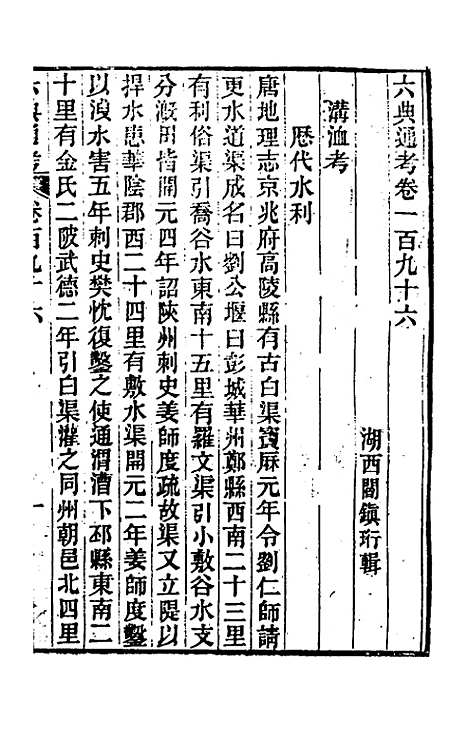 六典通考卷一百九十六
湖西閻鎮珩輯
溝洫考
歷代水利
唐地理志京兆府高陵縣有古白渠寶厤元年令劉仁師請
更水道渠成名曰劉公堰曰彭城華州鄭縣西南二十三里
有利俗渠引喬谷水東南十五里有羅文渠引小敷谷水支
分溉田皆開元四年詔陝州刺史姜師度疏故渠又立隄以
捍水患華陰郡西二十四里有敷水渠開元二年姜師度鑿
以洩水害五年刺史樊忱復鑿之使通渭漕下邽縣東南二
十里有金氏二陂武德二年引白渠灌之同州朝邑北四里
六典通考
卷百九十六
一